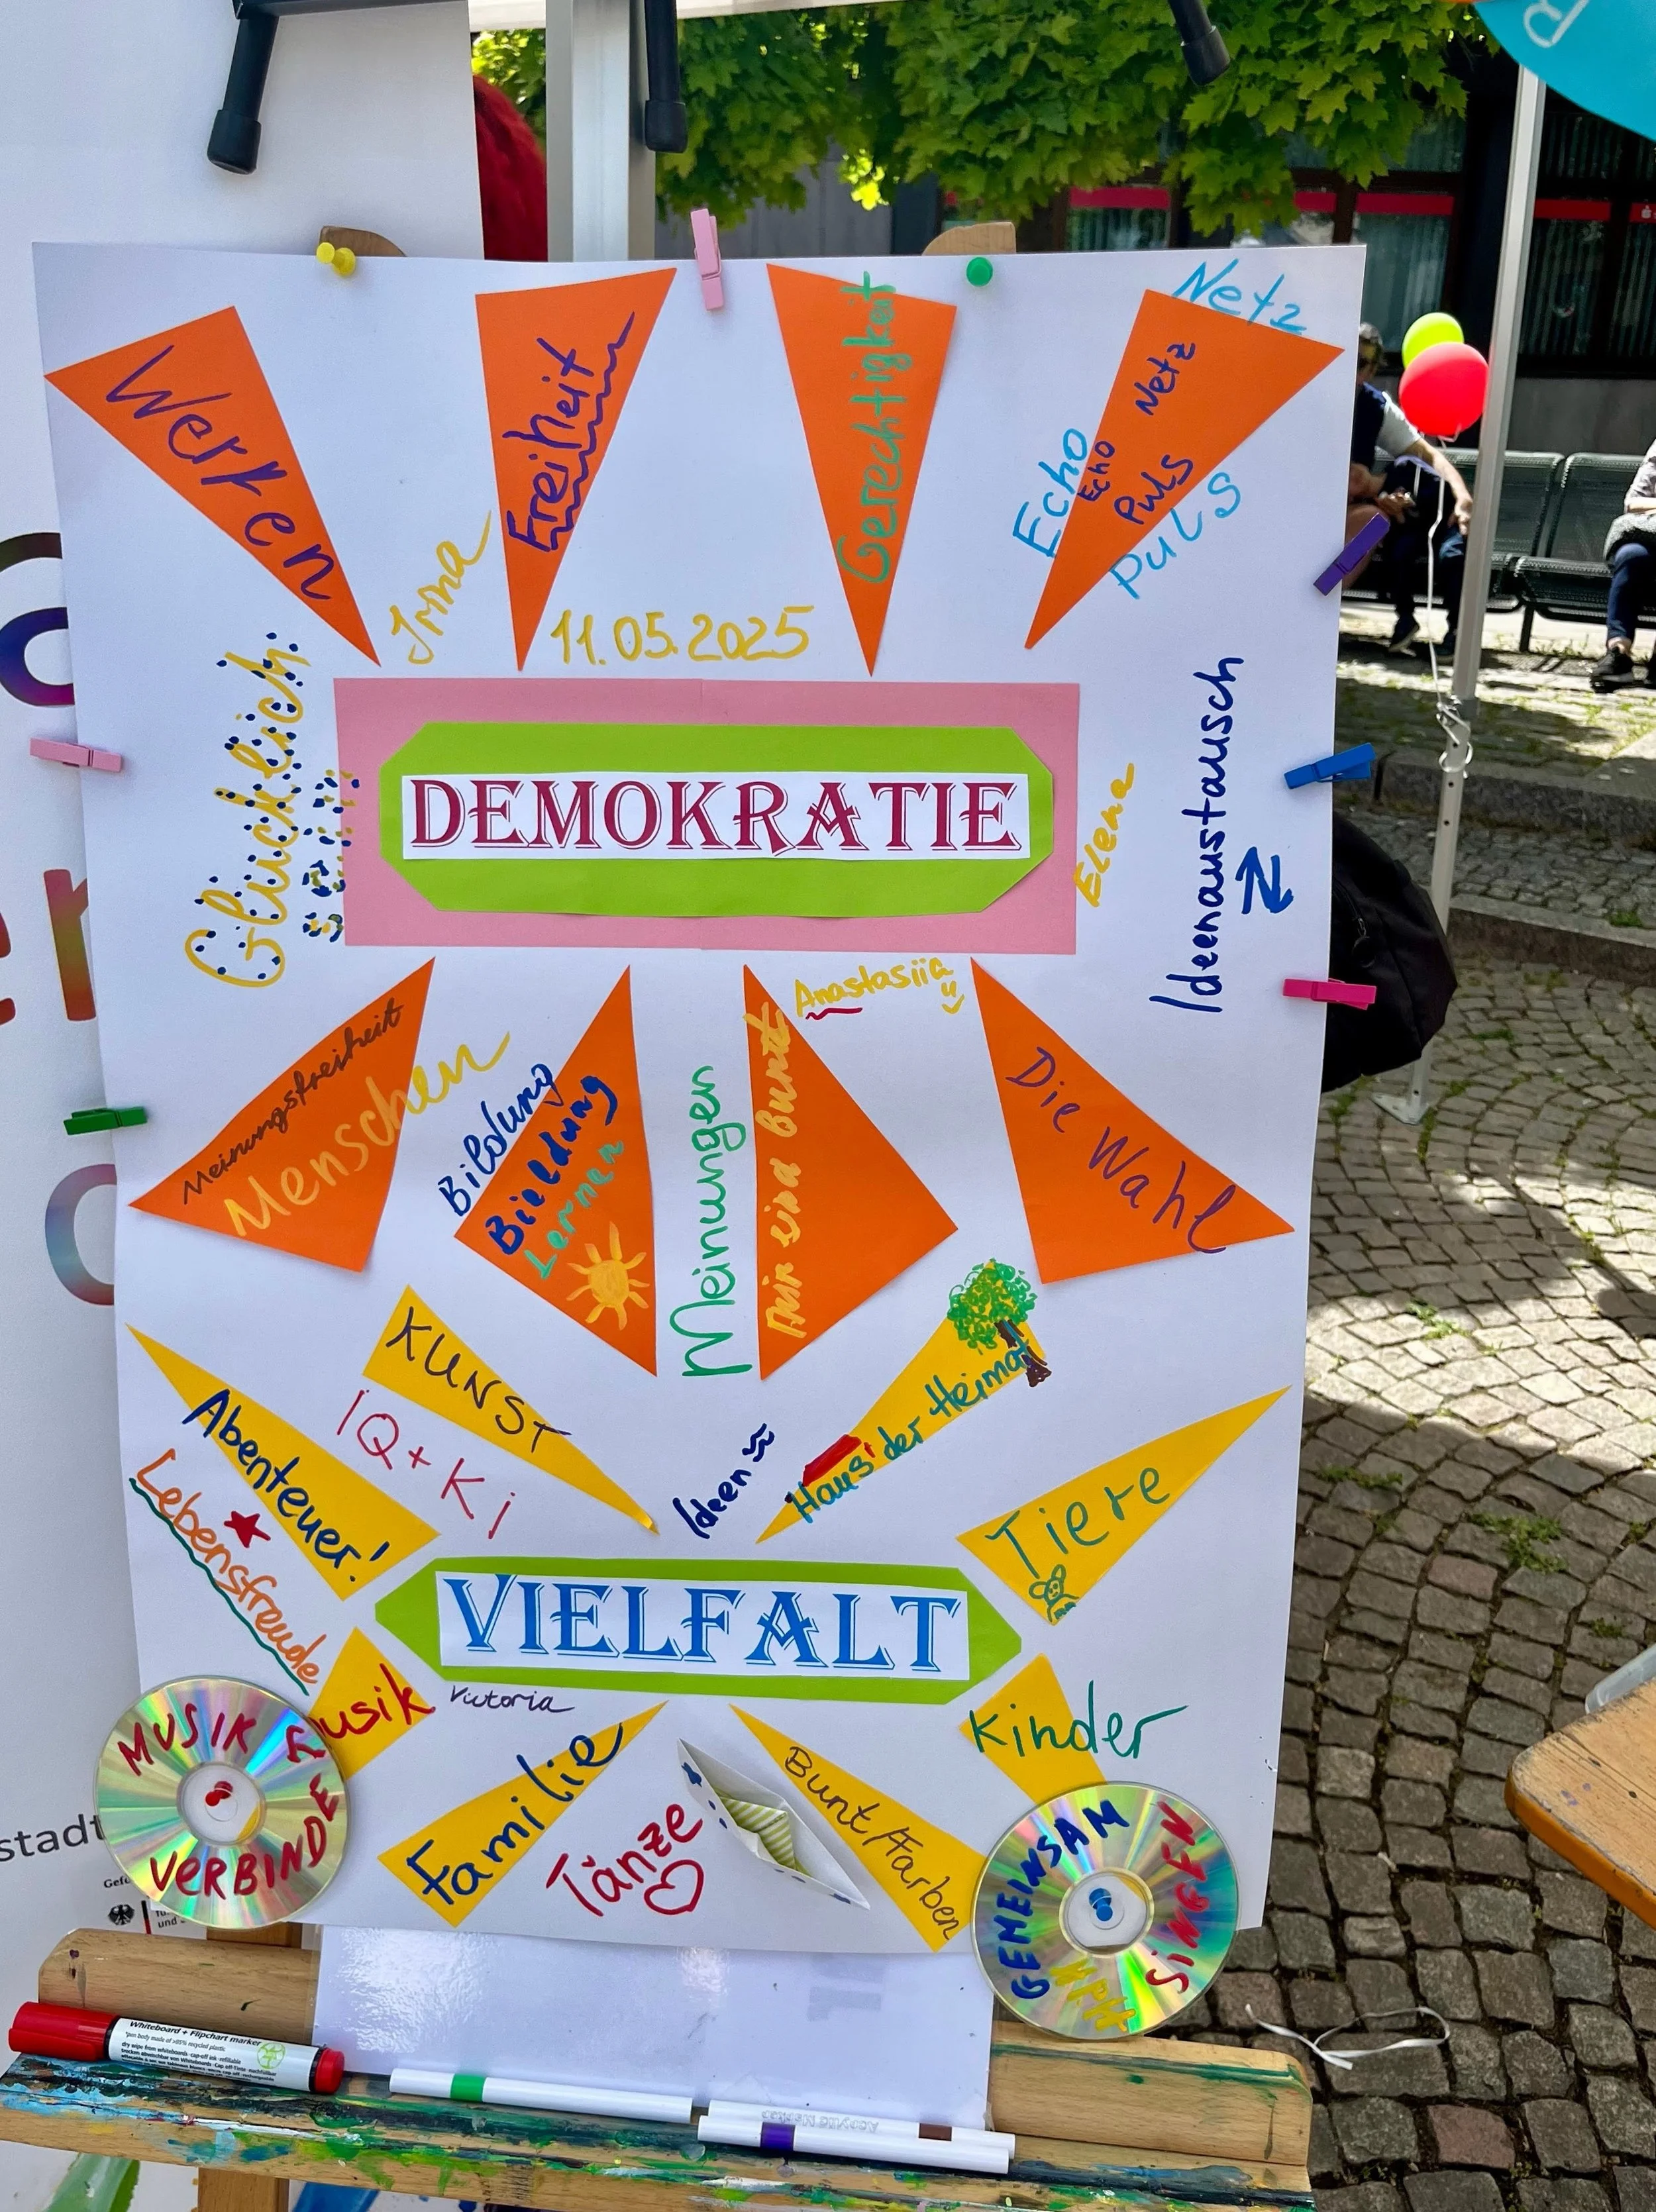 Werken
Freiheit
Gerechtigkeit
Netz
Netz
Echo
Echo
Puls
Puls
Irina
11.05.2025
Glücklich
DEMOKRATIE
Elena
Ideenaustausch
Anastasiia
Meinungsfreiheit
Menschen
Bildung
Bieldung
Lernen
Meinungen
Wir sind Bunt
Die Wahl
KUNST
IQ + Ki
Abenteuer!
Lebensfreude
Ideen
Haus der Heimat
Tiere
VIELFALT
Musik
Victoria
Familie
Tänze
Bunt/Farben
Kinder
MUSIK
VERBINDE
GEMEINSAM
SiNGEN
stadt
Gefö
und
Whiteboard + Flipchart marker